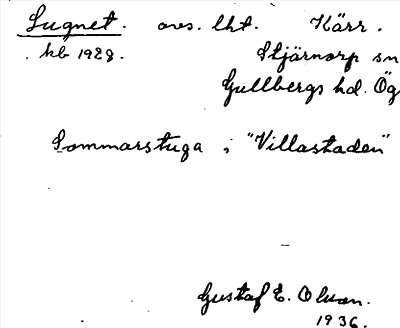 Lugnet. avs. lht. Kärr.
kb 1928. Stjärnorp sn
Gullbergs hd. Ög
Sommarstuga i "Villastaden"
Gustaf E. Olsson.
1936.